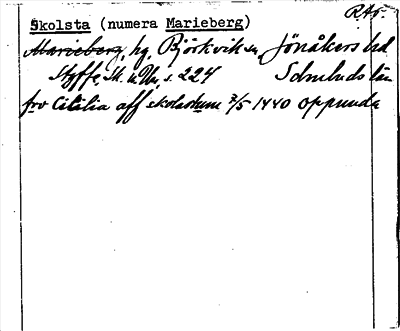 RAp.
Skolsta (numera Marieberg)
Marieberg, hg, Björkvik sn, Jönåkers hd
Styffe, Sk. u. Un., s. 224 Södmlnds län
fro Cicilia aff skolastum 7/5 1440 Oppunda